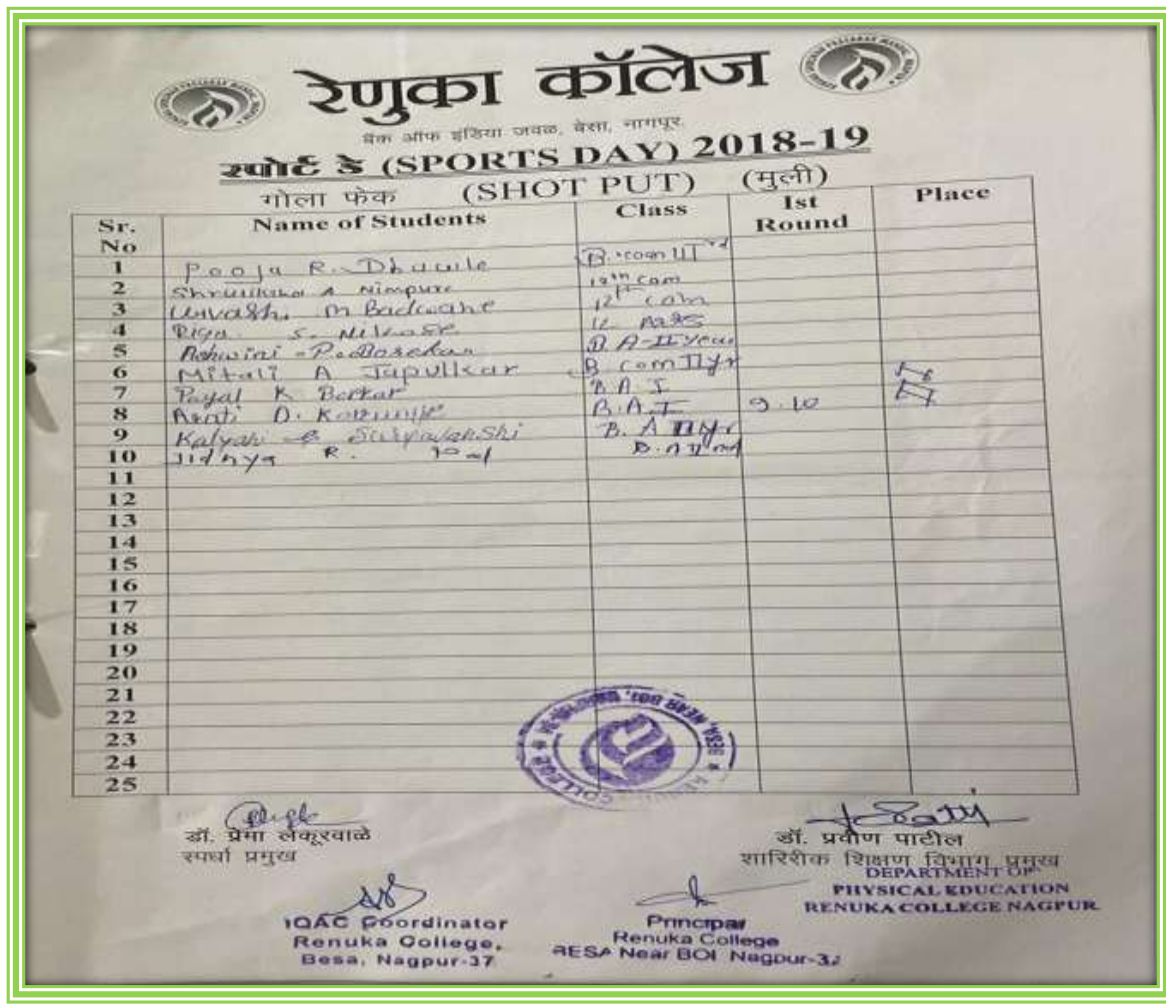 रेणुका कॉलेज
बैंक ऑफ इंडिया जवळ, बेसा, नागपूर.
स्पोर्ट डे (SPORTS DAY) 2018-19
गोला फेक (SHOT PUT) (मुली)
Sr. No Name of Students Class Ist Round Place
1 Pooja R. Dhawle B.com III rd
2 A Nimpure 12th com
3 Urvashi M 12th com
4 Riya S. 12 Arts
5 Ashwini P. B.A-II year
6 Mitali A Japulkar B com II yr
7 Payal K Borkar B.A.I
8 Arati D. B.A.I 9.10
9 Kalyani Suryavanshi B.A yr
10 R.
11
12
13
14
15
16
17
18
19
20
21
22
23
24
25
डॉ. प्रेमा लेकूरवाळे
स्पर्धा प्रमुख
डॉ. प्रवीण पाटील
शारिरीक शिक्षण विभाग प्रमुख
DEPARTMENT OF
PHYSICAL EDUCATION
RENUKA COLLEGE NAGPUR
IQAC Coordinator
Renuka College,
Besa, Nagpur-37
Principal
Renuka College
BESA Near BOI Nagpur-37